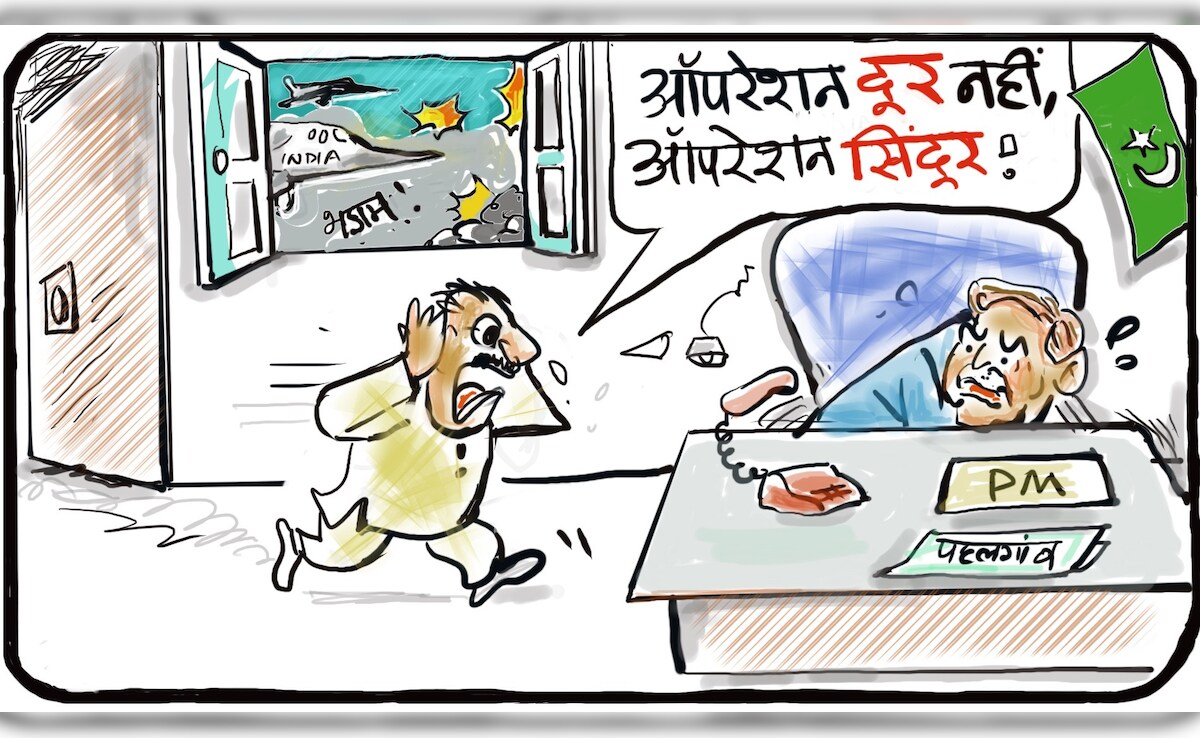 ऑपरेशन दूर नहीं,
ऑपरेशन सिंदूर!
INDIA
भडाम!
PM
पहलगांव